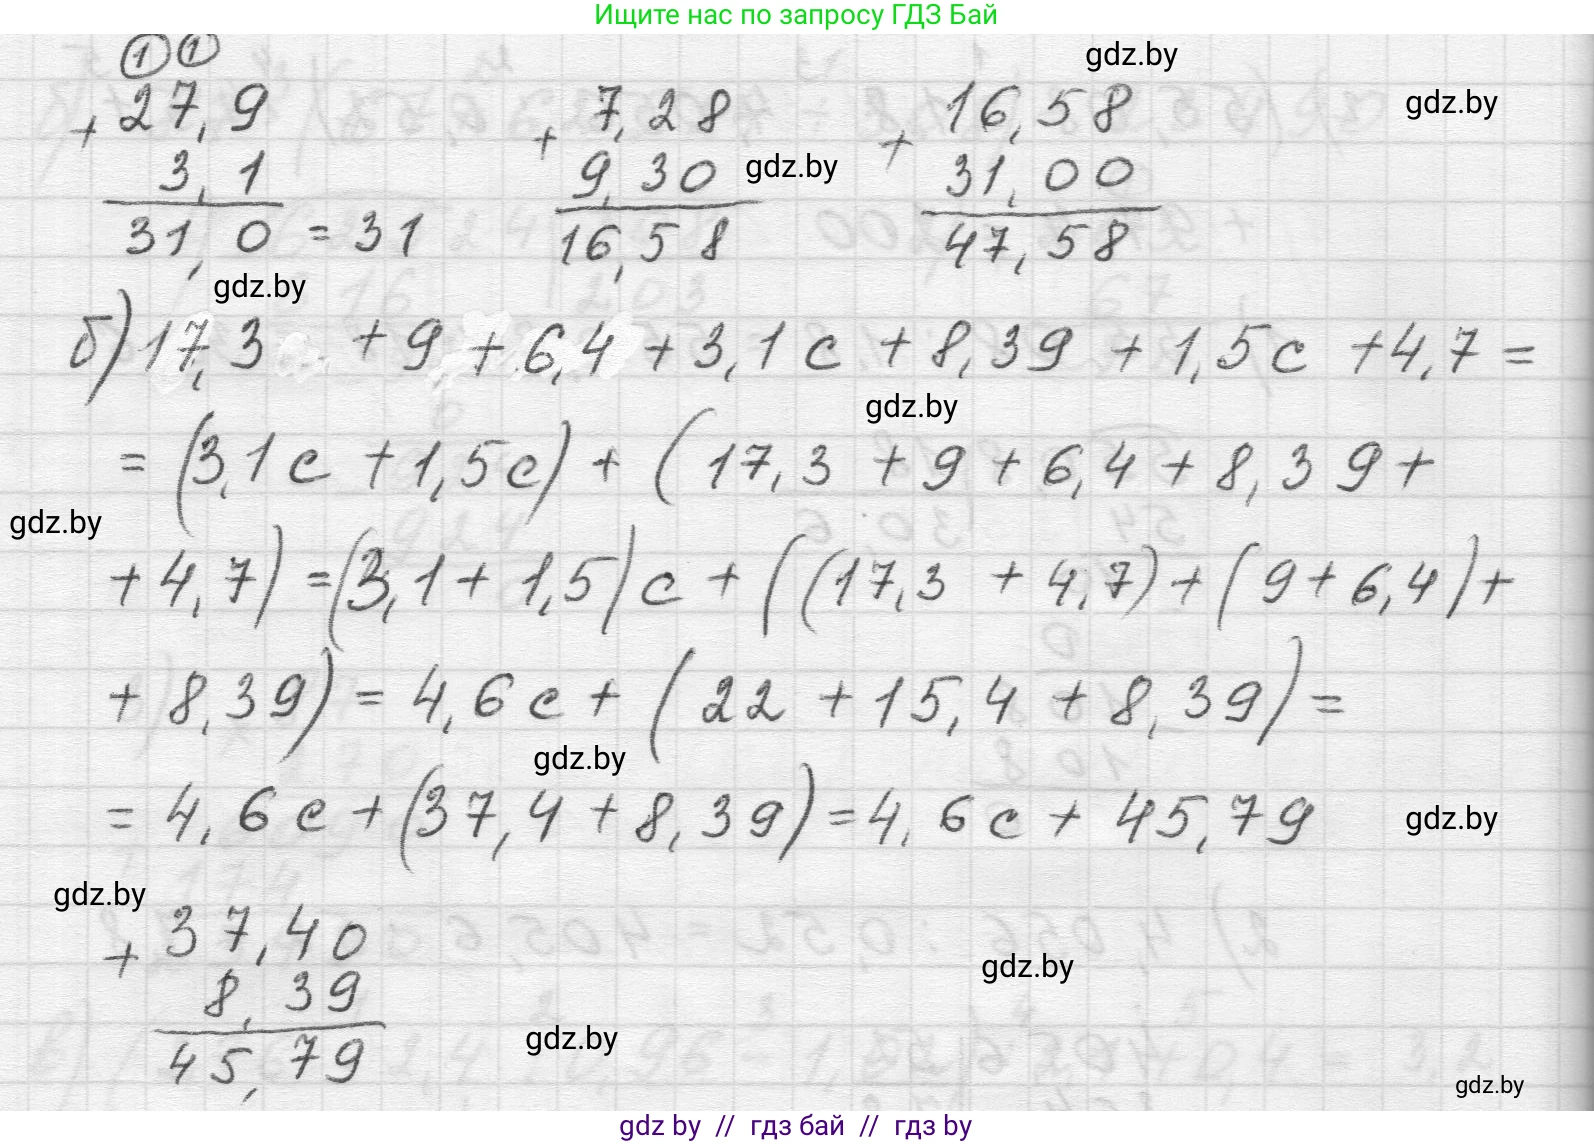 Ищите нас по запросу ГДЗ Бай
① ①
+ 27,9
3,1
31,0 = 31
+ 7,28
9,30
16,58
+ 16,58
31,00
47,58
gdz.by
gdz.by
gdz.by
gdz.by
б) 17,3 + 9 + 6,4 + 3,1с + 8,39 + 1,5с + 4,7 =
gdz.by
= (3,1с + 1,5с) + (17,3 + 9 + 6,4 + 8,39 +
gdz.by
+ 4,7) = (3,1 + 1,5)с + ((17,3 + 4,7) + (9 + 6,4) +
+ 8,39) = 4,6с + (22 + 15,4 + 8,39) =
gdz.by
= 4,6с + (37,4 + 8,39) = 4,6с + 45,79
gdz.by
gdz.by
+ 37,40
8,39
45,79
gdz.by
gdz.by
gdz.by
gdz by // гдз бай // гдз by